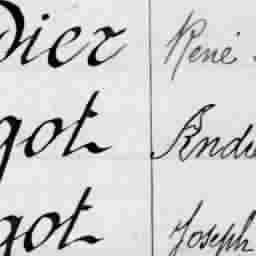 dier René
got André
got Joseph